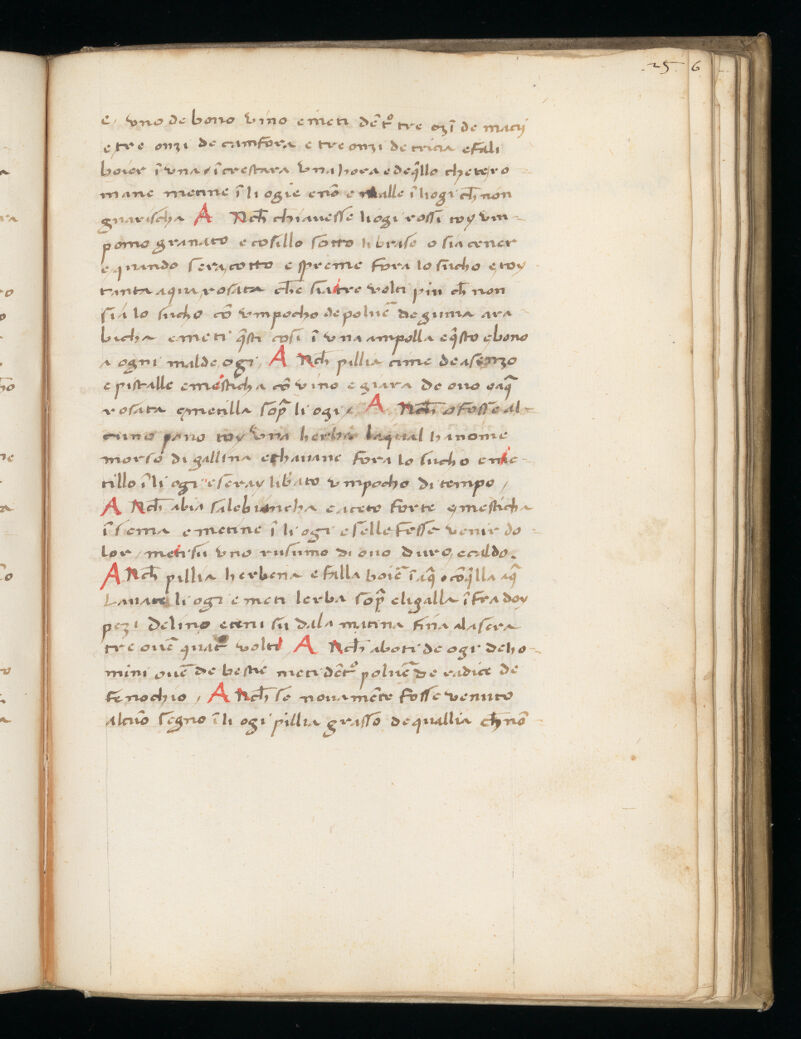 25 6
e, vno de bono vino e meti dēt° tre ozī de macij
e tre onzi de camfora e tre onzi de tricia e fali
boier ī vna īcrestara vna hora e de q̄llo che tero
mane metine ī li ogi e nō e malle ī li ogi ch̄ non
guarischa Anch̄ chi auesse li ogi rossi toy vm
pomo granato e cosillo sotto li brase o sia cener
e quando sera cotto e spreme fora lo sucho e toy
tanta aqua rosata che sia tre volti piu ch̄ non
sia lo sucho cō vmpocho de poluē de guma ara
bicha e meti q̄sti cosi ī vna ampolla e q̄sto e bono
a ogni mal de ogi, Anch̄ pillia cime de asenzo
e pistalle e mesticha cō vino e giara de ouo e aq̄
rosata e metilla sop̄ li ogi, Anch̄ o fosse al
cuno pano toy vna herba laqual ha nome
morso di gallina e chauane fora lo sucho e me
tillo ī li ogi e seray libato vmpocho di tempo,
Anch̄ abia sale biancha e aceto forte e mesticha
īsema e metine ī li ogi e selle fesse venir do
lor, meti su vno rusumo di ouo duro e caldo.
Anch̄ pillia herbena e falla boiē ī aq̄ cō q̄lla aq̄
Lauate li ogi e meti lerba sop̄ e ligalla īfra doy
pezi de lino e teni su dala matina fina ala sera
tre ouē quat° volti Anch̄ a boti de ogi de ho
mini ouē de bestie meti dēt° poluē de radice de
fenochio, Anch̄ se nouamēte fosse venuto
alcuō segno ī li ogi pillia grasso de quallia ch̄ nō